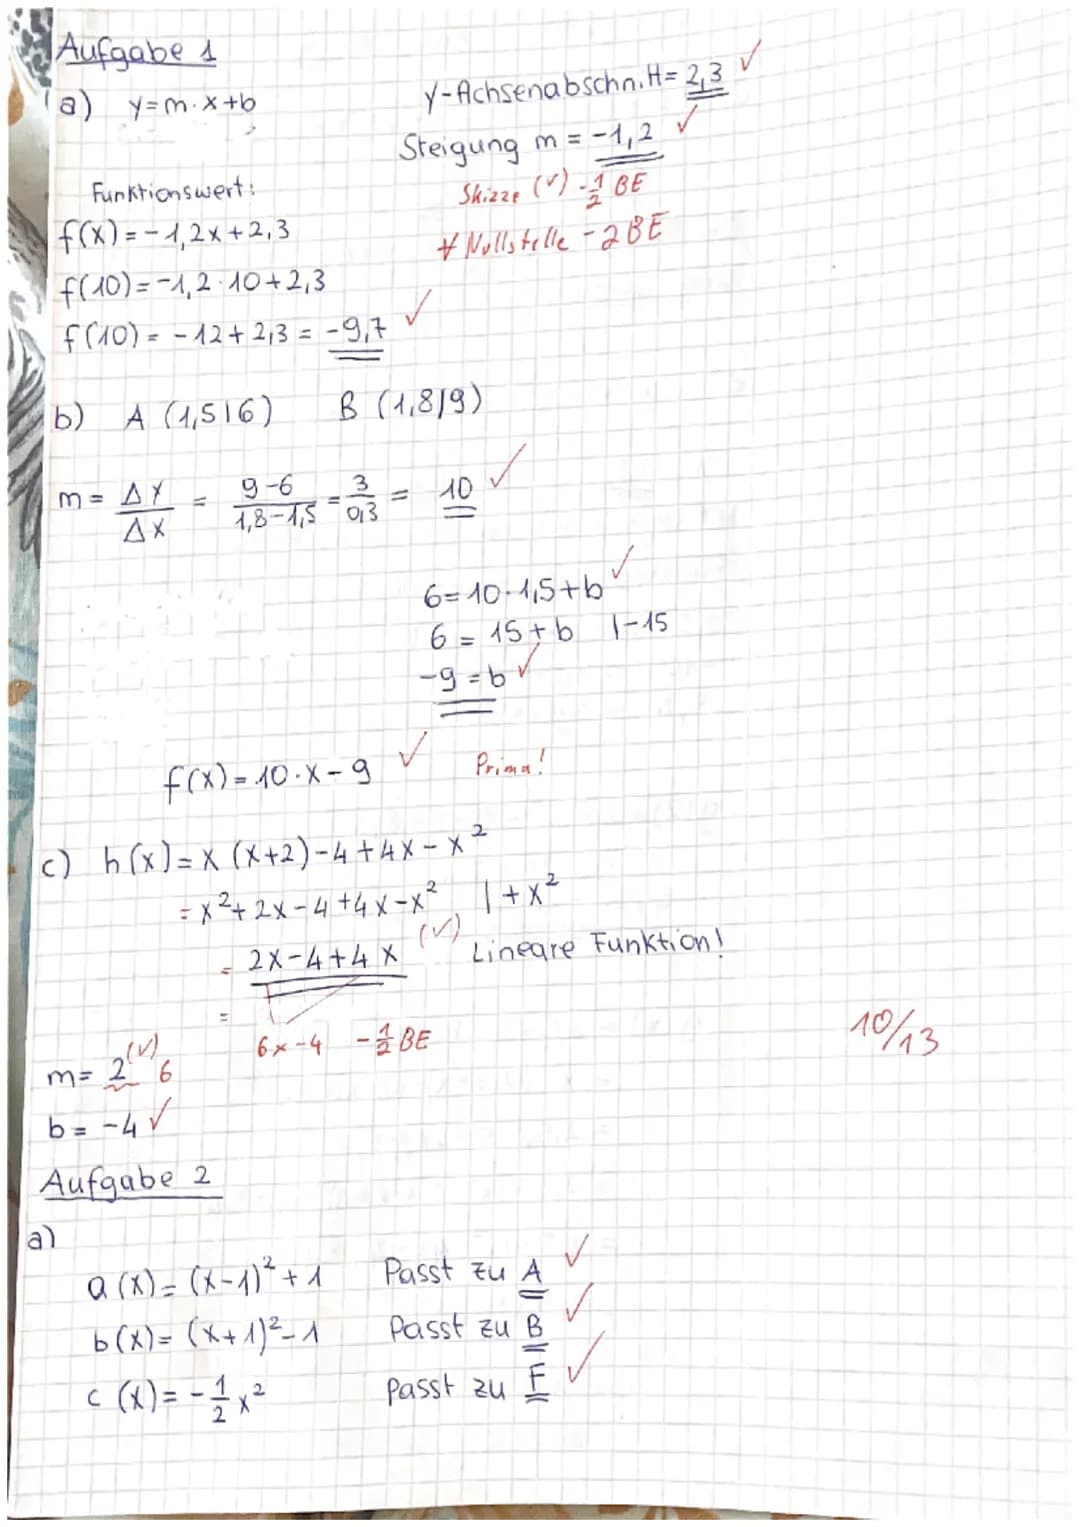 Aufgabe 1
a) y=m·x+b
y-Achsenabschn. H= 2,3 ✓
Steigung m = -1,2 ✓
Skizze (✓) -1/2 BE
Nullstelle -2BE
Funktionswert:
f(x) = -1,2x+2,3
f(10) = -1,2·10+2,3
f(10) = -12+2,3 = -9,7 ✓
b) A (1,5|6) B (1,8|9)
m = ΔY/ΔX = 9-6/1,8-1,5 = 3/0,3 = 10 ✓
6=10·1,5+b ✓
6 = 15+b |-15
-9 = b ✓
f(x) = 10·x-9 ✓ Prima!
c) h(x) = x (x+2)-4+4x-x²
= x²+2x-4+4x-x² |+x²
= 2x-4+4x (✓) Lineare Funktion!
=
6x-4 -1/2 BE
10/13
m= 2 (✓) 6
b = -4 ✓
Aufgabe 2
a)
a(x) = (x-1)²+1 Passt zu A ✓
b(x) = (x+1)²-1 Passt zu B ✓
c(x) = -1/2 x² passt zu F ✓